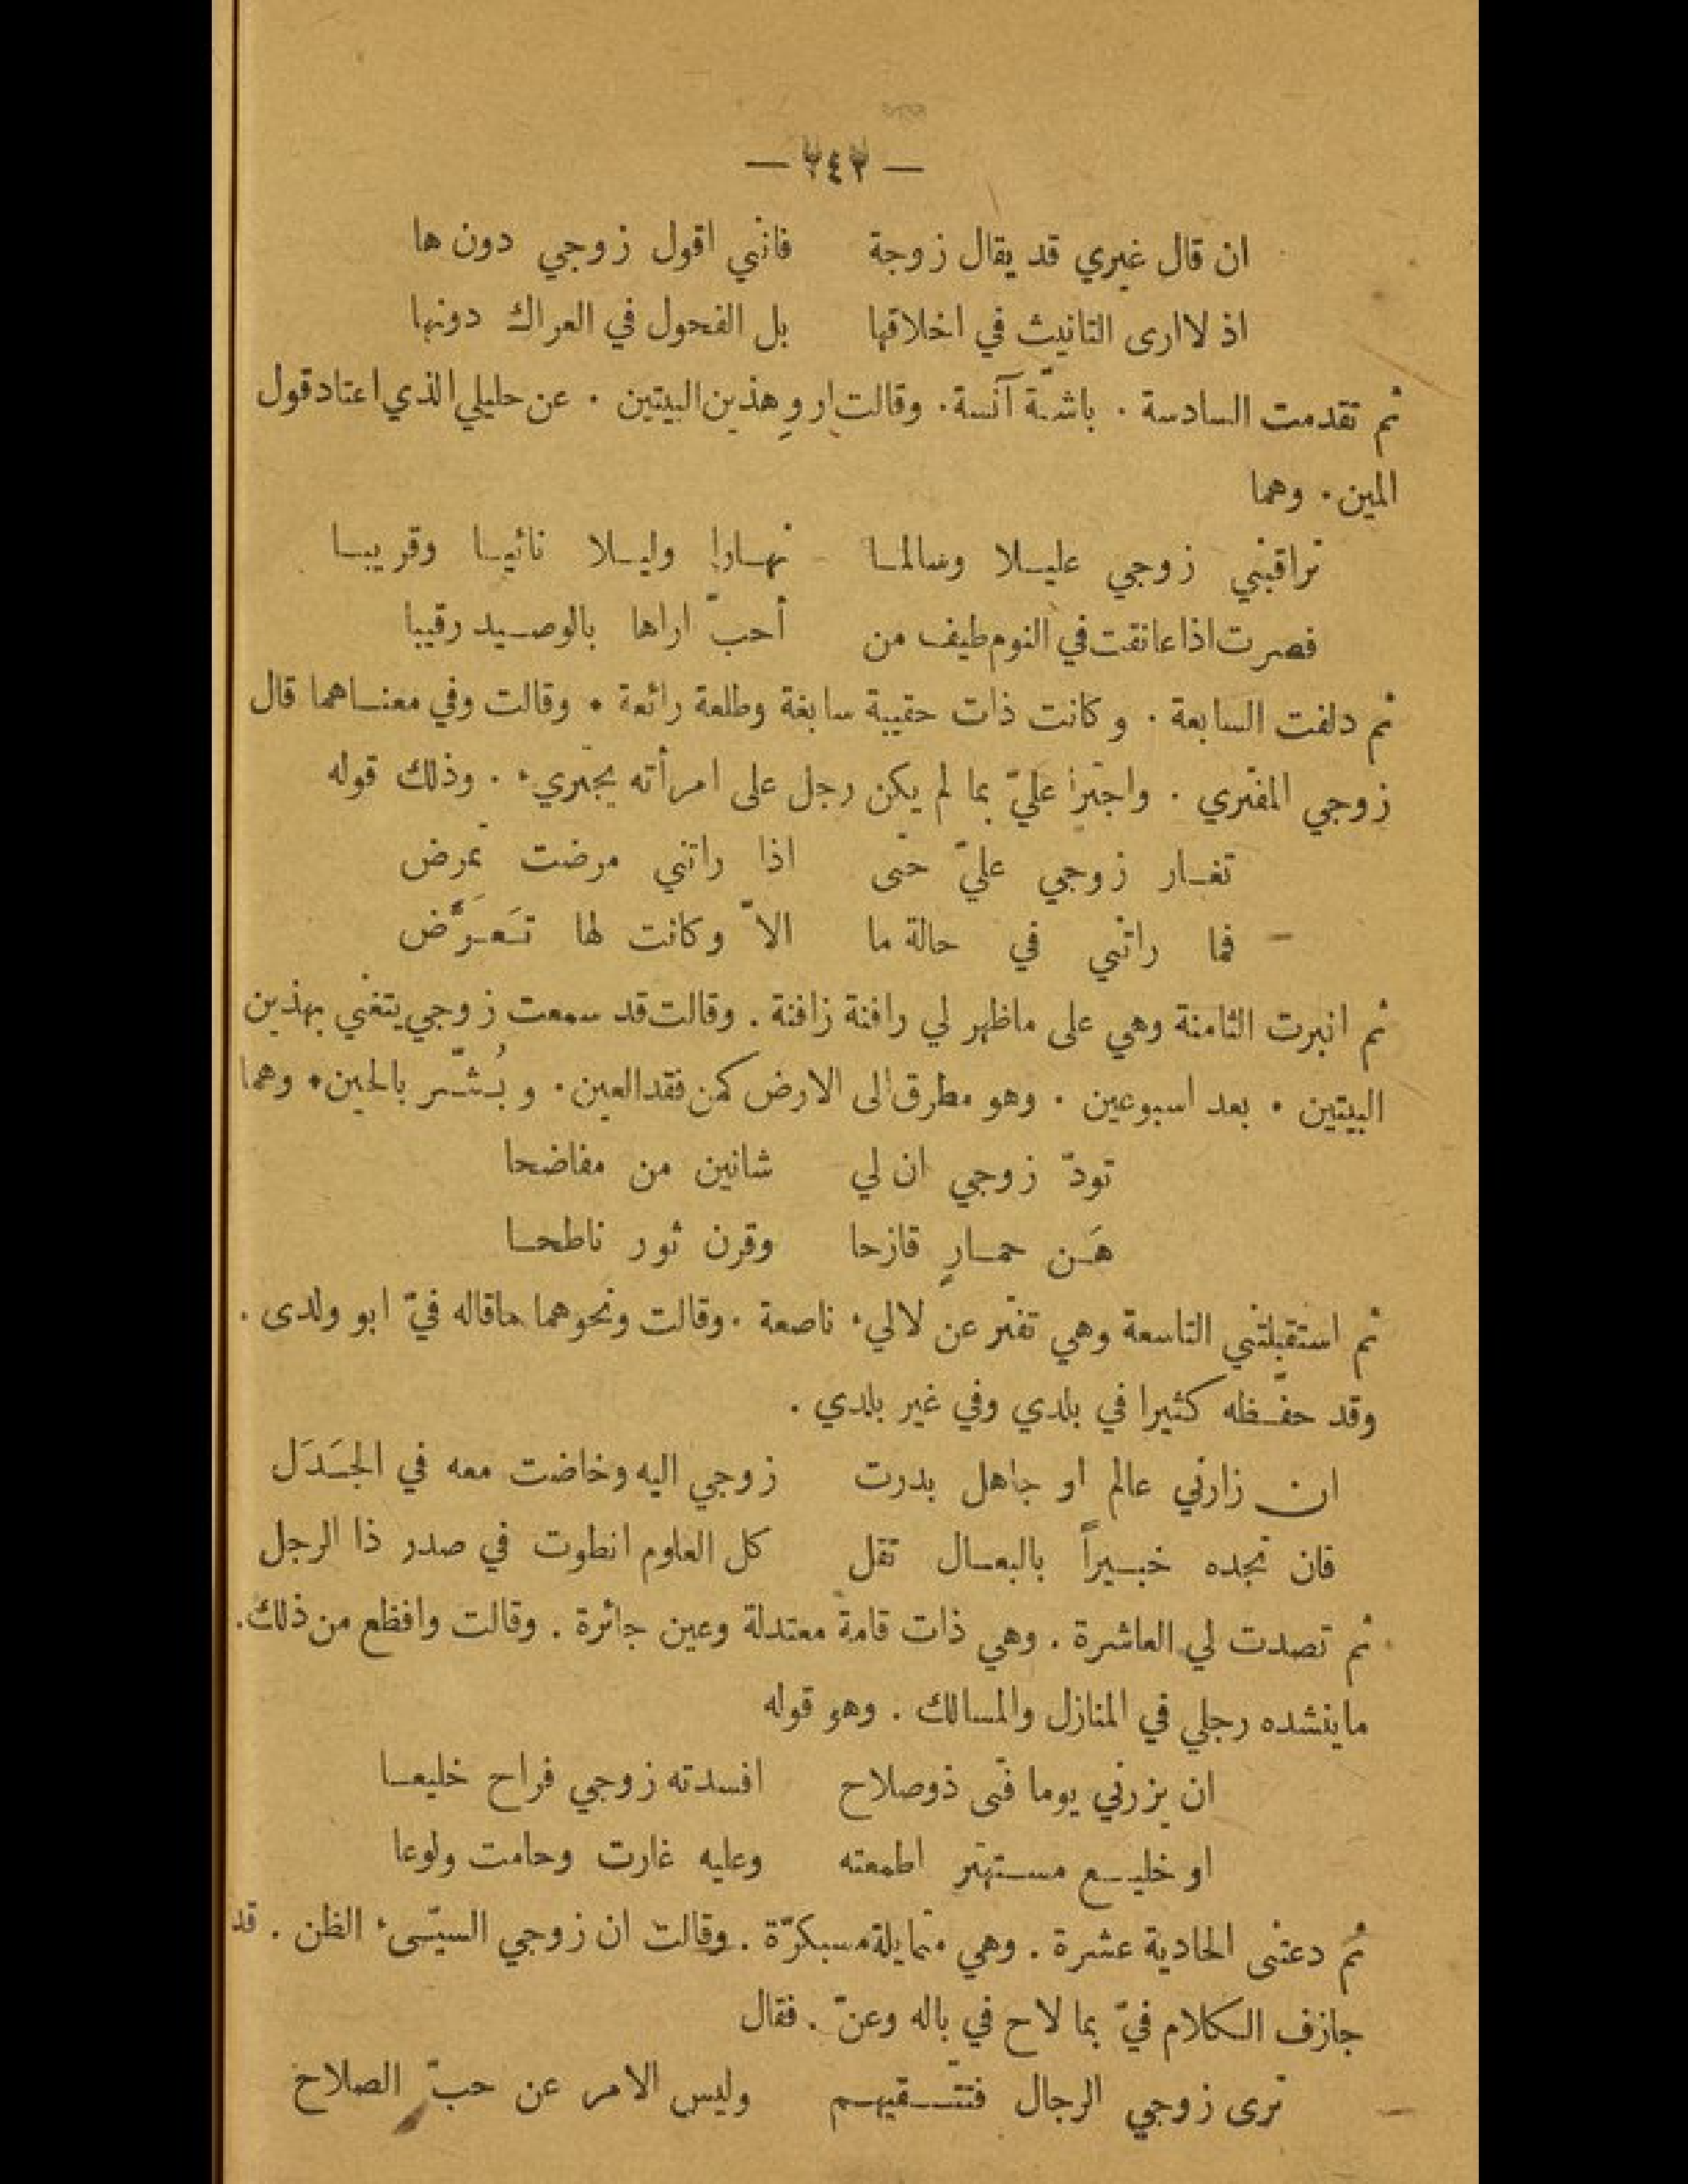 — ٢٤٢ —
ان قال غيري قد يقال زوجة فانني اقول زوجي دون ها
اذ لا ارى التانيث في اخلاقها بل الفحول في العراك دونها
ثم تقدمت السادسة . باشّة آنسة . وقالت اروِ هذين البيتين . عن حليلي الذي اعتاد قول
المين . وهما
تراقبني زوجي عليــلا وسالمــا نهــارا وليــلا نائيــا وقريبــا
فصرت اذا عانقت في النوم طيف من أحبّ اراها بالوصــيد رقيبا
ثم دلفت السابعة . وكانت ذات حقيبة سابغة وطلعة رائعة . وقالت وفي معنــاهما قال
زوجي المفتري . واجترأ عليّ بما لم يكن رجل على امرأته يجتريء . وذلك قوله
تغــار زوجي عليّ حتى اذا راتني مرضت تمرض
فما راتني في حالة ما الاّ وكانت لها تَــعَــرَّض
ثم انبرت الثامنة وهي على ماظهر لي رافنة زافنة . وقالت قد سمعت زوجي يتغنى بهذين
البيتين . بعد اسبوعين . وهو مطرق الى الارض كمن فقد العين . وبُشّــر بالحين . وهما
تودّ زوجي ان لي شانين من مفاضحا
هَــن حمــارٍ قازحا وقرن ثور ناطحــا
ثم استقبلتني التاسعة وهي تفتر عن لاليء ناصعة . وقالت ونحوهما ماقاله فيّ ابو ولدى .
وقد حفّــظه كثيرا في بلدي وفي غير بلدي .
ان زارني عالم او جاهل بدرت زوجي اليه وخاضت معه في الجَــدَل
فان تجده خبــيراً بالبعــال تقل كل العلوم انطوت في صدر ذا الرجل
ثم تصدت لي العاشرة . وهي ذات قامة معتدلة وعين جائرة . وقالت وافظع من ذلك .
ماينشده رجلي في المنازل والمسالك . وهو قوله
ان يزرني يوما فتى ذوصلاح افسدته زوجي فراح خليعــا
او خليــع مســتهتر اطمعته وعليه غارت وحامت ولوعا
ثم دعتنى الحادية عشرة . وهي متمايلة مسبكرّة . وقالت ان زوجي السيّىء الظن . قد
جازف الــكلام فيّ بما لاح في باله وعنّ . فقال
ترى زوجي الرجال فتتّــقيهــم وليس الامر عن حبّ الصلاح